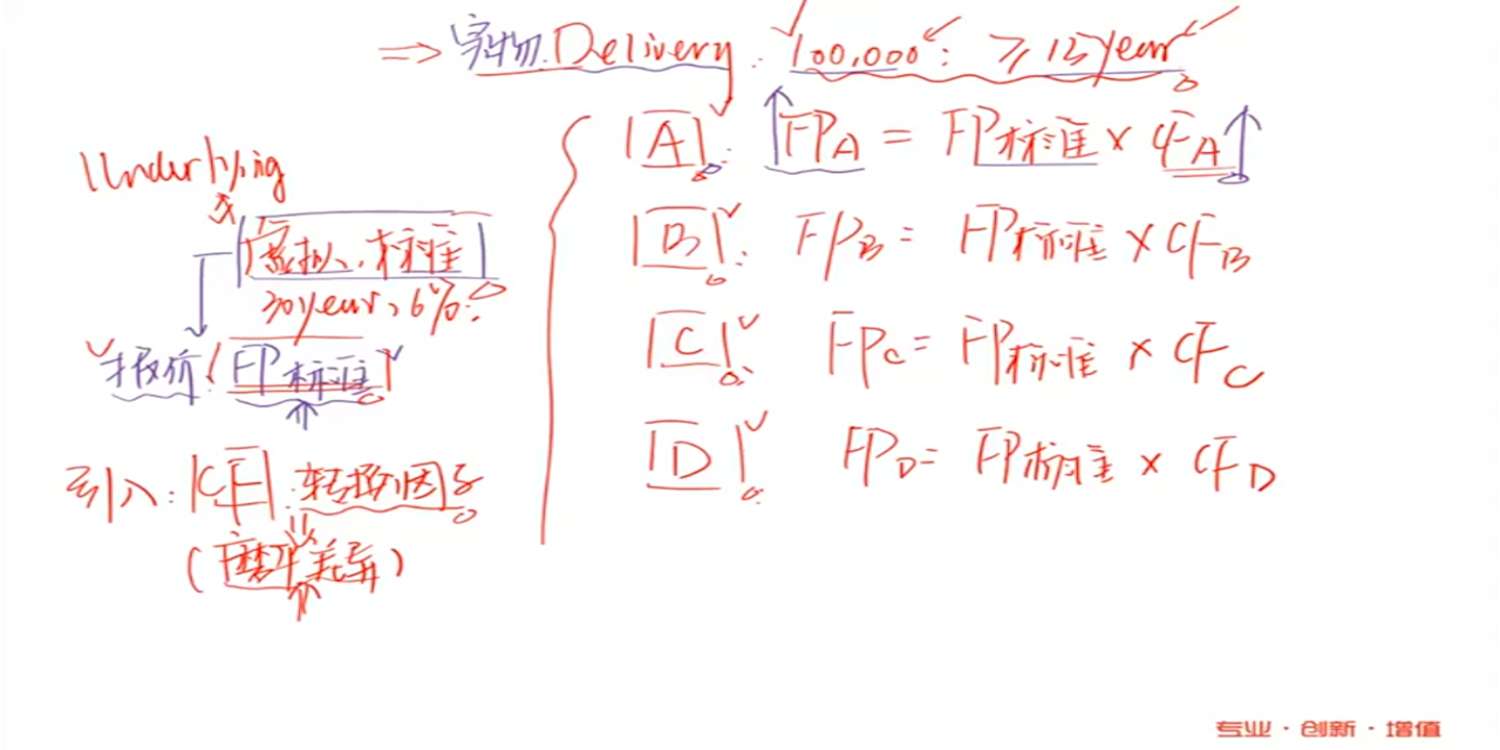 ⇒ 实物 Delivery: 100,000: ≥ 15 year
Underlying
虚拟、标准
30 year, 6%:
报价: FP标准
引入: CF: 转换因子
(磨平差异)
A: FP_A = FP标准 × CF_A
B: FP_B = FP标准 × CF_B
C: FP_C = FP标准 × CF_C
D: FP_D = FP标准 × CF_D
专业·创新·增值